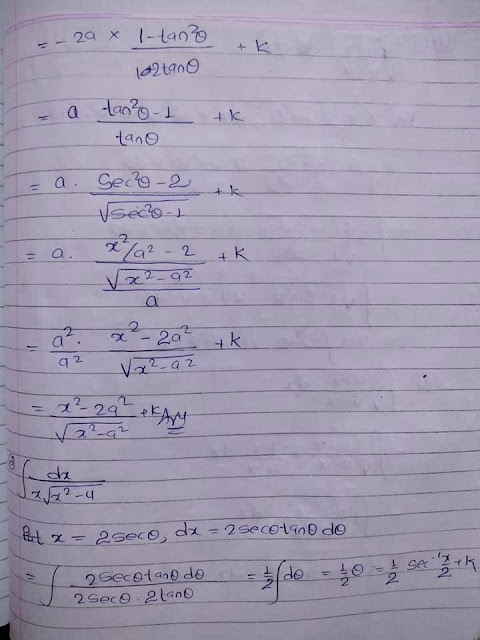 = - 2a × (1-tan²θ)/(2tanθ) + K
= a (tan²θ - 1)/(tanθ) + K
= a. (sec²θ - 2)/(√(sec²θ - 1)) + K
= a. (x²/a² - 2)/(√(x² - a²)/a) + K
= a²/a² . (x² - 2a²)/(√(x² - a²)) + K
= (x² - 2a²)/(√(x² - a²)) + K Ans
∫ dx/(x√(x² - 4))
Put x = 2secθ, dx = 2secθtanθ dθ
= ∫ (2secθtanθ dθ)/(2secθ . 2tanθ) = 1/2 ∫dθ = 1/2 θ = 1/2 sec⁻¹ x/2 + K